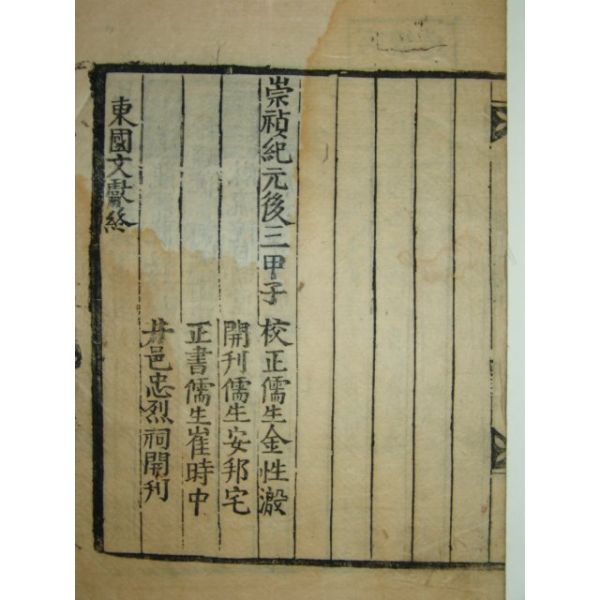 崇禎紀元後三甲子 校正儒生金性溵
開刊儒生安邦宅
正書儒生崔時中
井邑忠烈祠開刊
東國文獻終